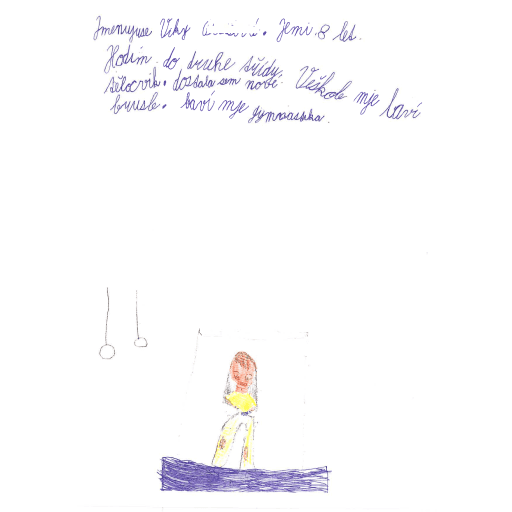 Jmenujuse Viky. Jemi 8 let.
Hodím do druhe třídy. Veškole mje baví
tělocvik. dostala sem nové
brusle. baví mje gymnastika.